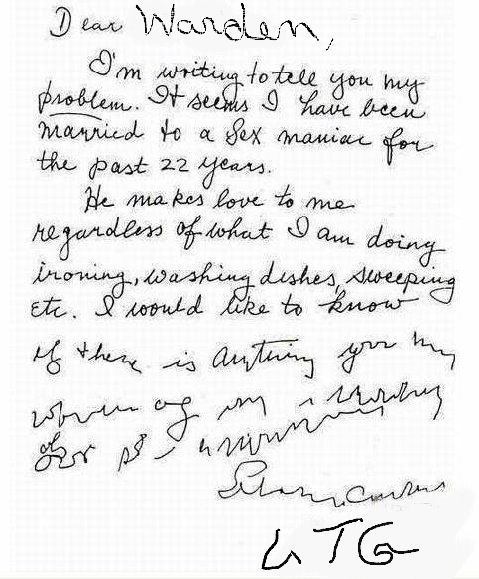 Dear Warden,
I'm writing to tell you my
problem. It seems I have been
married to a Sex maniac for
the past 22 years.
He makes love to me
regardless of what I am doing
ironing, washing dishes, sweeping
etc. I would like to know
if there is anything you
G TG